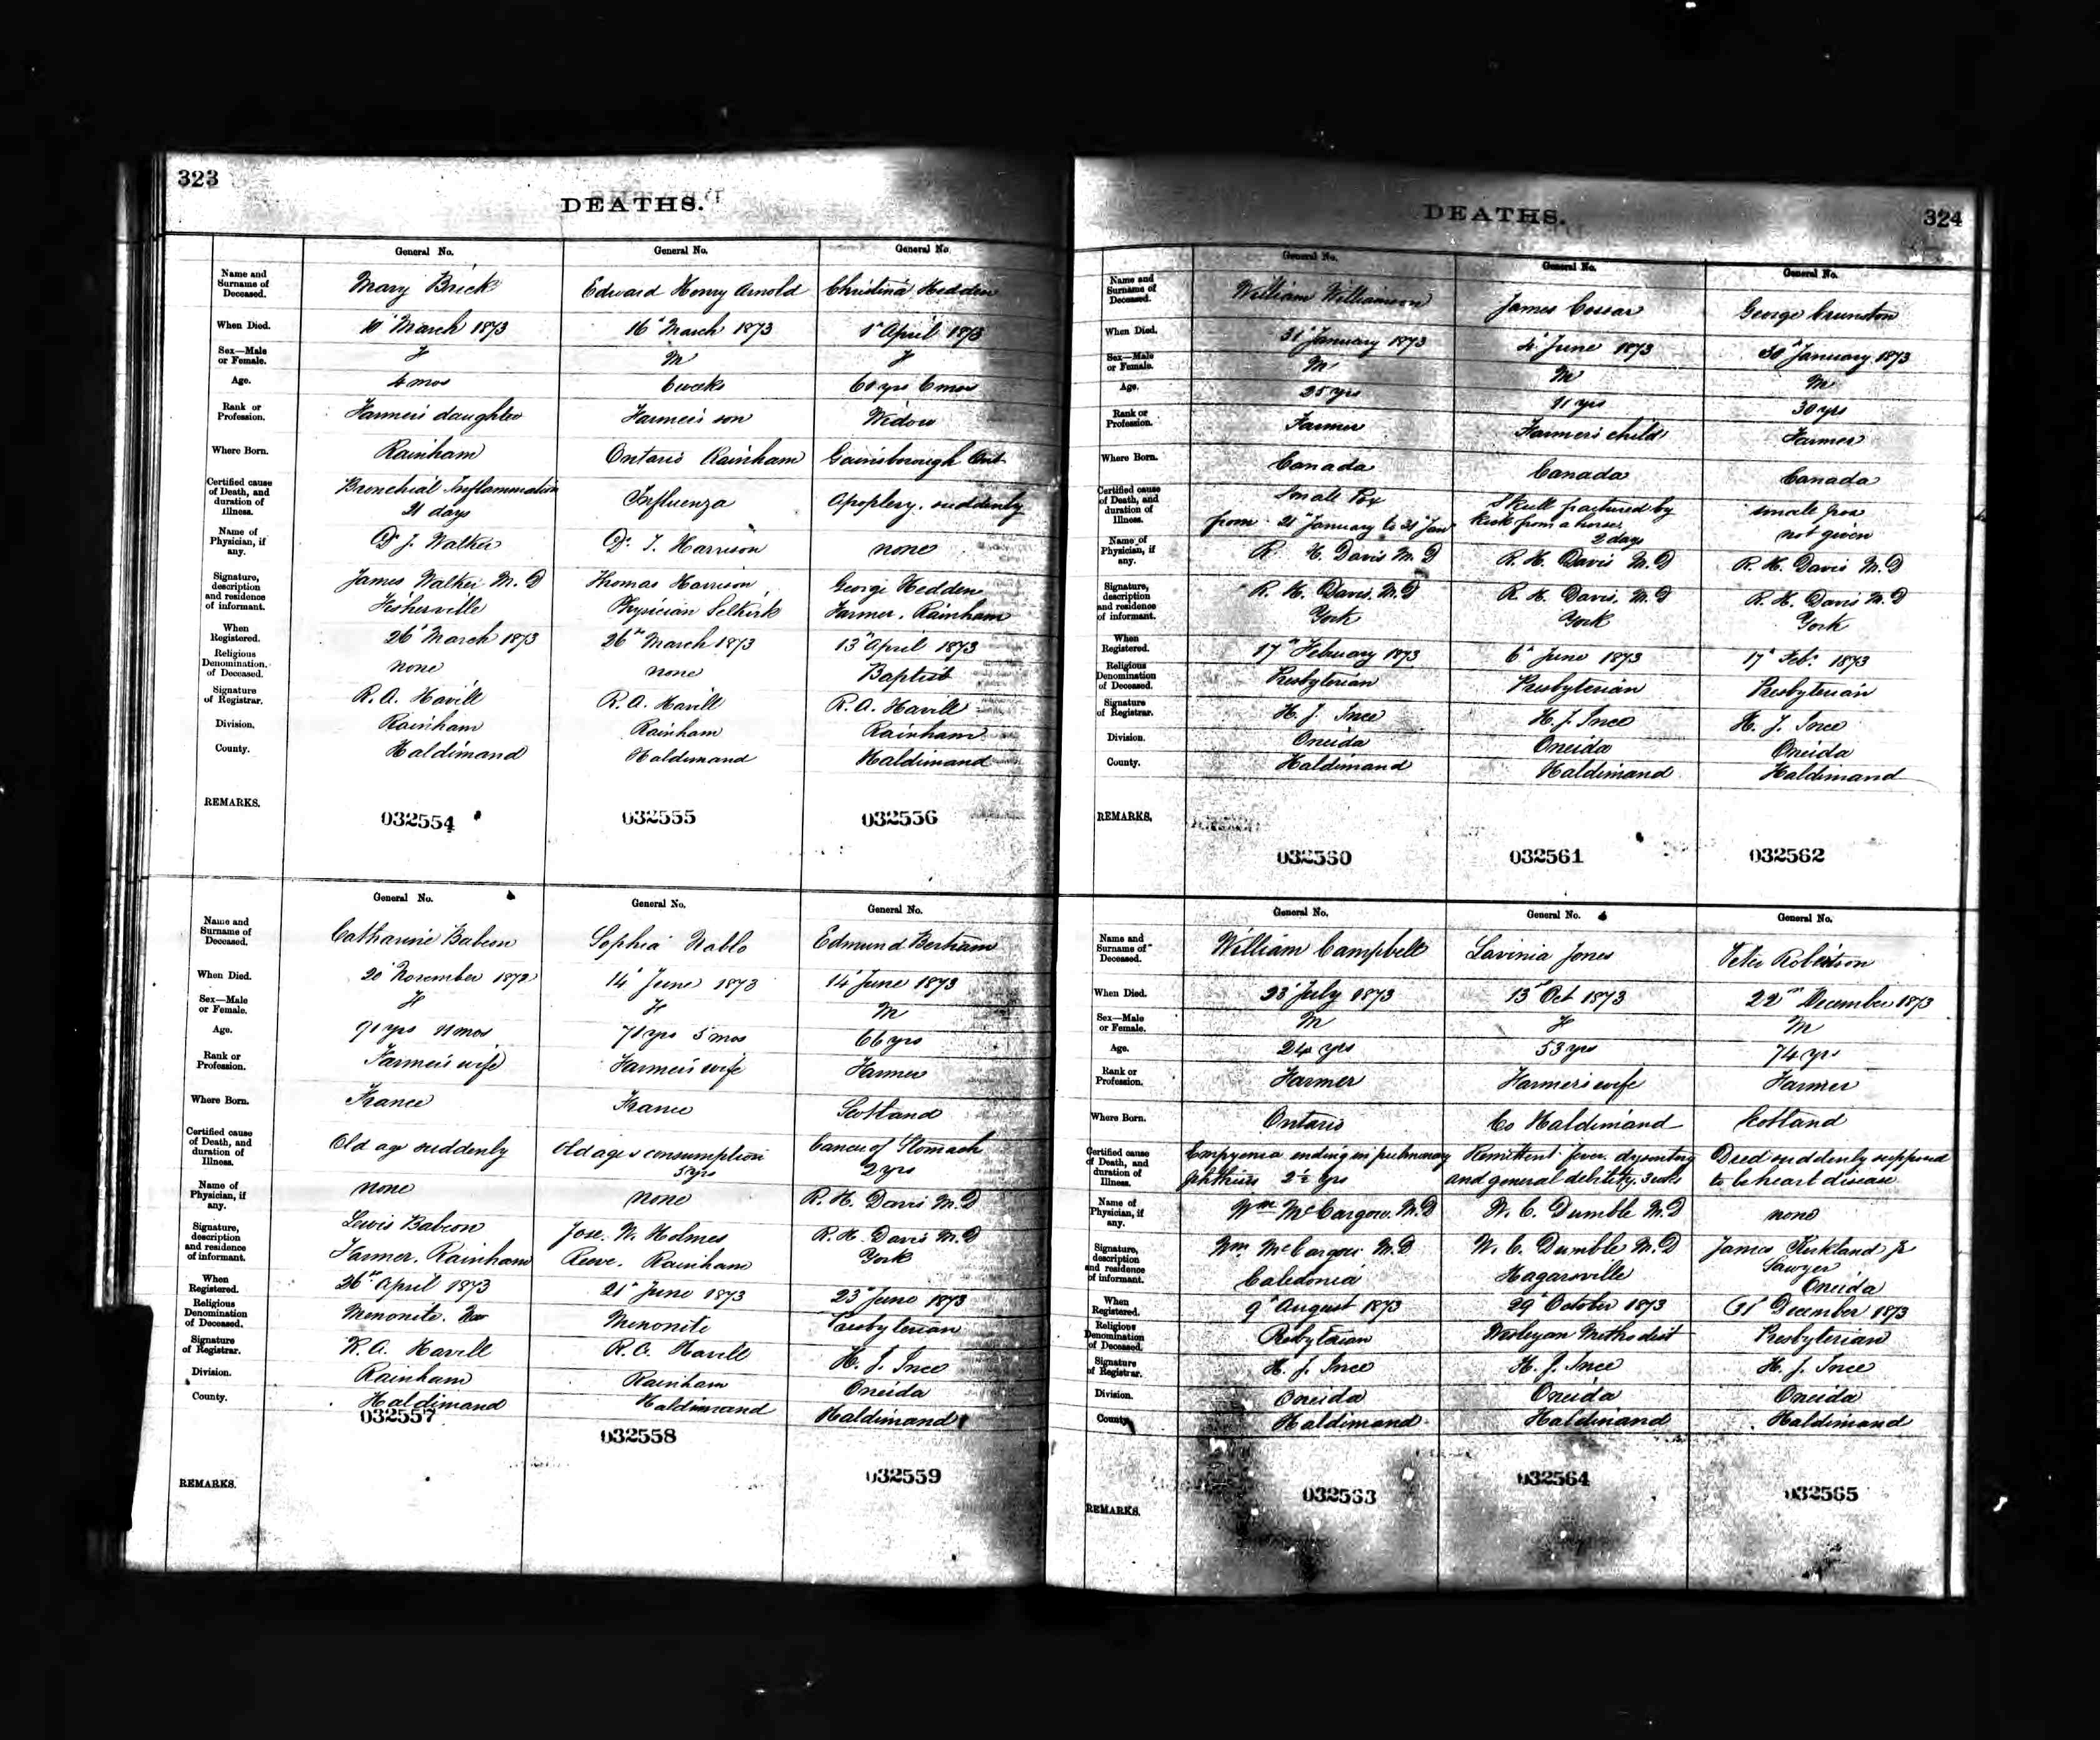 323
DEATHS.
General No. General No. General No.
Name and Surname of Deceased. Mary Brick Edward Henry Arnold Christina Hedden
When Died. 10" March 1873 16" March 1873 1" April 1873
Sex—Male or Female. F M F
Age. 4 mos 6 weeks 60 yrs 6 mos
Rank or Profession. Farmer's daughter Farmer's son Widow
Where Born. Rainham Ontario Rainham Gainsborough Ont
Certified cause of Death, and duration of Illness. Bronchial Inflammation 21 days Influenza Apoplexy. suddenly
Name of Physician, if any. Dr J. Walker Dr. T. Harrison none
Signature, description and residence of informant. James Walker M.D Fisherville Thomas Harrison Physician Selkirk George Hedden Farmer. Rainham
When Registered. 26" March 1873 26" March 1873 13" April 1873
Religious Denomination of Deceased. none none Baptist
Signature of Registrar. R. A. Havill R. A. Havill R. A. Havill
Division. Rainham Rainham Rainham
County. Haldimand Haldimand Haldimand
REMARKS.
032554 032555 032556
General No. General No. General No.
Name and Surname of Deceased. Catharine Babcon Sophia Nablo Edmund Bertram
When Died. 20" November 1872 14" June 1873 14" June 1873
Sex—Male or Female. F F M
Age. 91 yrs 11 mos 71 yrs 5 mos 66 yrs
Rank or Profession. Farmer's wife Farmer's wife Farmer
Where Born. France France Scotland
Certified cause of Death, and duration of Illness. Old age suddenly Old age & consumption 5 yrs Cancer of Stomach 2 yrs
Name of Physician, if any. none none R. H. Davis M.D
Signature, description and residence of informant. Lewis Babcon Farmer. Rainham Jose. W. Holmes Reeve. Rainham R. H. Davis M.D York
When Registered. 26" April 1873 21" June 1873 23" June 1873
Religious Denomination of Deceased. Menonite. Menonite Presbyterian
Signature of Registrar. R. A. Havill R. A. Havill H. J. Ince
Division. Rainham Rainham Oneida
County. Haldimand Haldimand Haldimand
032557 032558 032559
REMARKS.
DEATHS. 324
General No. General No. General No.
Name and Surname of Deceased. William Williamson James Cossar George Crunston
When Died. 31" January 1873 4" June 1873 30" January 1873
Sex—Male or Female. M M M
Age. 25 yrs 11 yrs 30 yrs
Rank or Profession. Farmer Farmer's child Farmer
Where Born. Canada Canada Canada
Certified cause of Death, and duration of Illness. Small Pox from 21" January to 31" Jan Skull fractured by kick from a horse, 2 days small pox not given
Name of Physician, if any. R. H. Davis M.D R. H. Davis M.D R. H. Davis M.D
Signature, description and residence of informant. R. H. Davis. M.D York R. H. Davis. M.D York R. H. Davis M.D York
When Registered. 17" February 1873 6" June 1873 17" Feb. 1873
Religious Denomination of Deceased. Presbyterian Presbyterian Presbyterian
Signature of Registrar. H. J. Ince H. J. Ince H. J. Ince
Division. Oneida Oneida Oneida
County. Haldimand Haldimand Haldimand
REMARKS.
032560 032561 032562
General No. General No. General No.
Name and Surname of Deceased. William Campbell Lavinia Jones Peter Robertson
When Died. 23" July 1873 13" Oct 1873 22" December 1873
Sex—Male or Female. M F M
Age. 24 yrs 53 yrs 74 yrs
Rank or Profession. Farmer Farmer's wife Farmer
Where Born. Ontario Co Haldimand Scotland
Certified cause of Death, and duration of Illness. Empyema ending in pulmonary phthisis 2½ yrs Remittent fever. dysentery and general debility, 3 wks Died suddenly supposed to be heart disease
Name of Physician, if any. Wm McCargow. M.D W. C. Dumble M.D none
Signature, description and residence of informant. Wm McCargow M.D Caledonia W. C. Dumble M.D Hagarsville James Kirkland Jr Sawyer Oneida
When Registered. 9" August 1873 29" October 1873 31" December 1873
Religious Denomination of Deceased. Presbyterian Wesleyan Methodist Presbyterian
Signature of Registrar. H. J. Ince H. J. Ince H. J. Ince
Division. Oneida Oneida Oneida
County. Haldimand Haldimand Haldimand
032563 032564 032565
REMARKS.